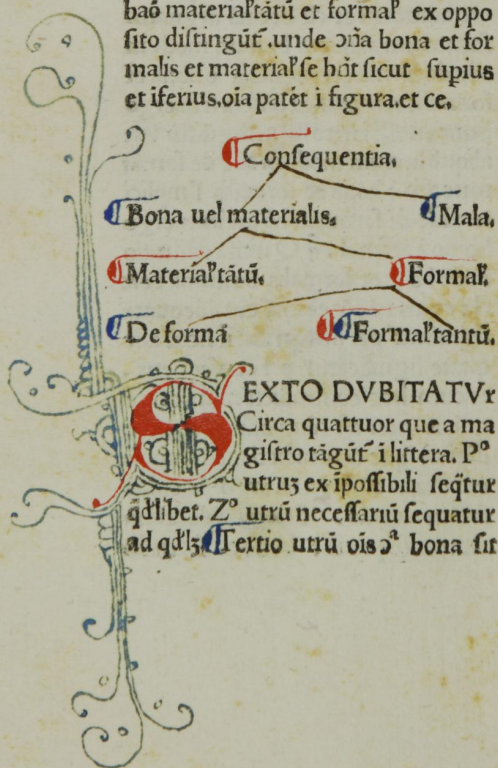 baō material᷒ tātū et formal᷒ ex oppo
ſito diſtingūt᷒.unde ↄña bona et for
malis et material᷒ ſe hñt ſicut ſupius
et īferius.oīa patēt ī figura.et ce.
Conſequentia.
Bona uel materialis. Mala.
Material᷒ tātū. Formal᷒.
De formā Formal᷒ tantū.
SEXTO DVBITATVr
Circa quattuor que a ma
giſtro tāgūt᷒ ī littera. Pº
utrūꝫ ex īpoſſibili ſeq̄tur
qđlibet. Zº utrū neceſſariū ſequatur
ad qđlꝫ Tertio utrū oīs ↄª bona ſit